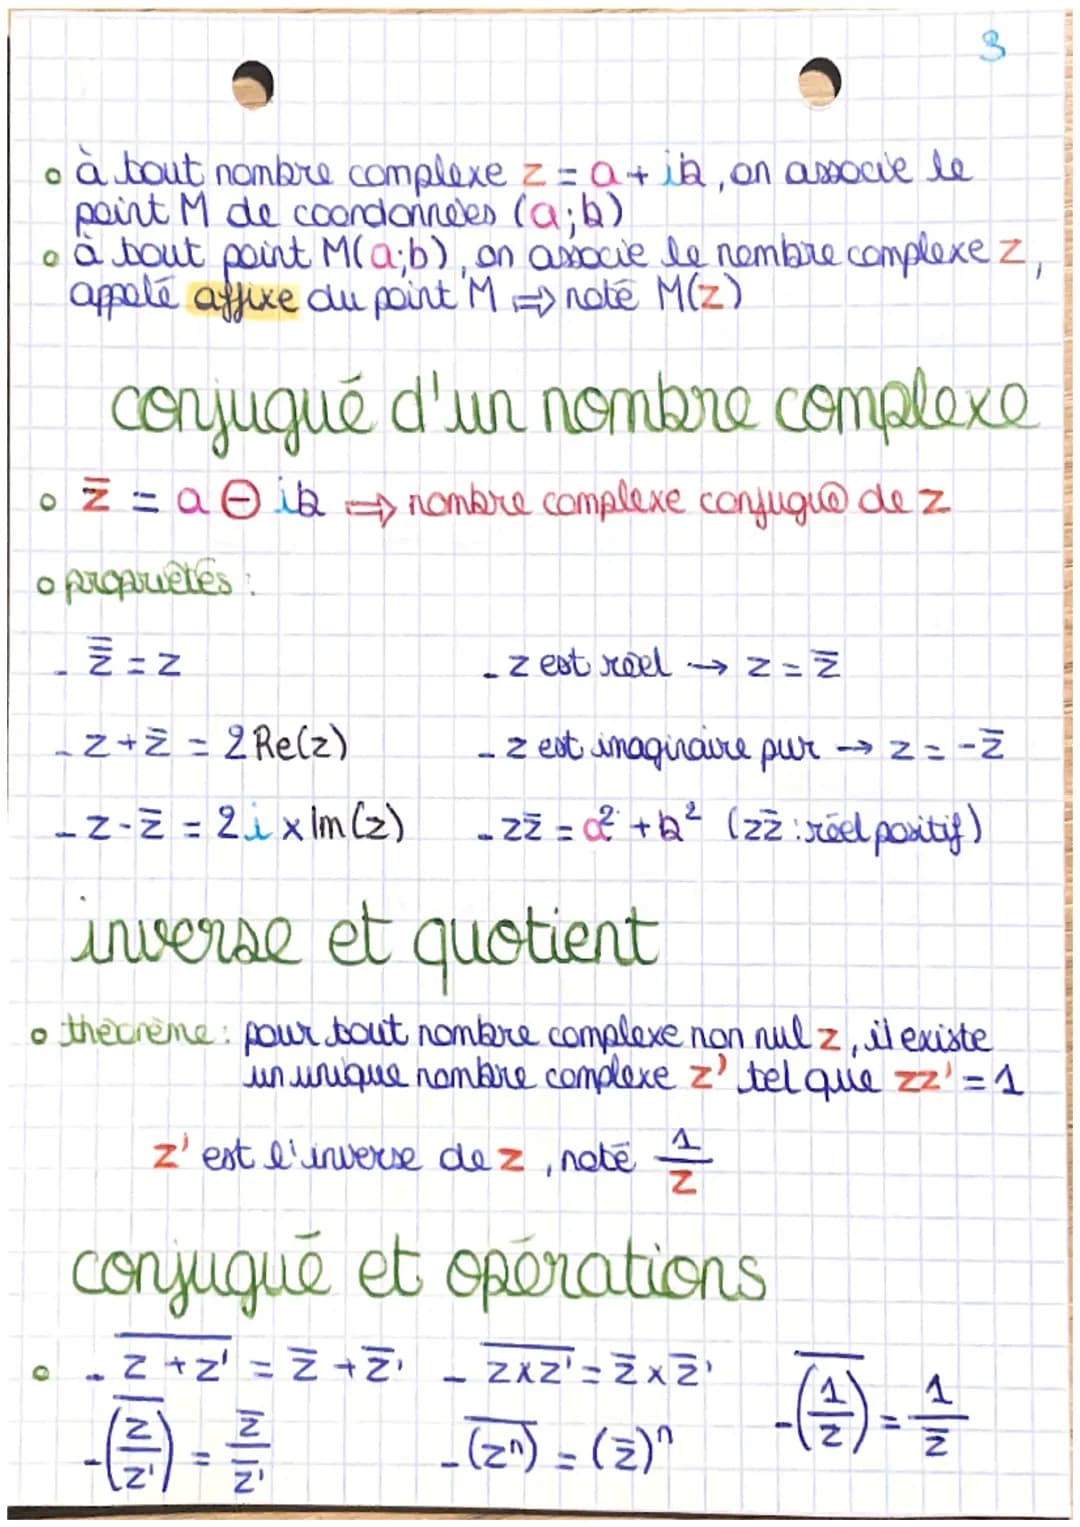 3
o à tout nombre complexe z = a + ib, on associe le
point M de coordonnées (a;b)
o à tout point M(a;b), on associe le nombre complexe z,
appelé affixe du point M ⇒ noté M(z)
conjugué d'un nombre complexe
o z̅ = a ⊖ ib ⇒ nombre complexe conjugué de z
o propriétés :
- z̿ = z - z est réel → z = z̅
- z + z̅ = 2Re(z) - z est imaginaire pur → z = -z̅
- z - z̅ = 2i x Im(z) - zz̅ = a² + b² (zz̅ : réel positif)
inverse et quotient
o théorème : pour tout nombre complexe non nul z, il existe
un unique nombre complexe z' tel que zz' = 1
z' est l'inverse de z, noté 1/z
conjugué et opérations
o - \overline{z + z'} = z̅ + z̅' - \overline{z x z'} = z̅ x z̅' - \overline{(1/z)} = 1/z̅
- \overline{(z/z')} = z̅/z̅' - \overline{(zⁿ)} = (z̅)ⁿ